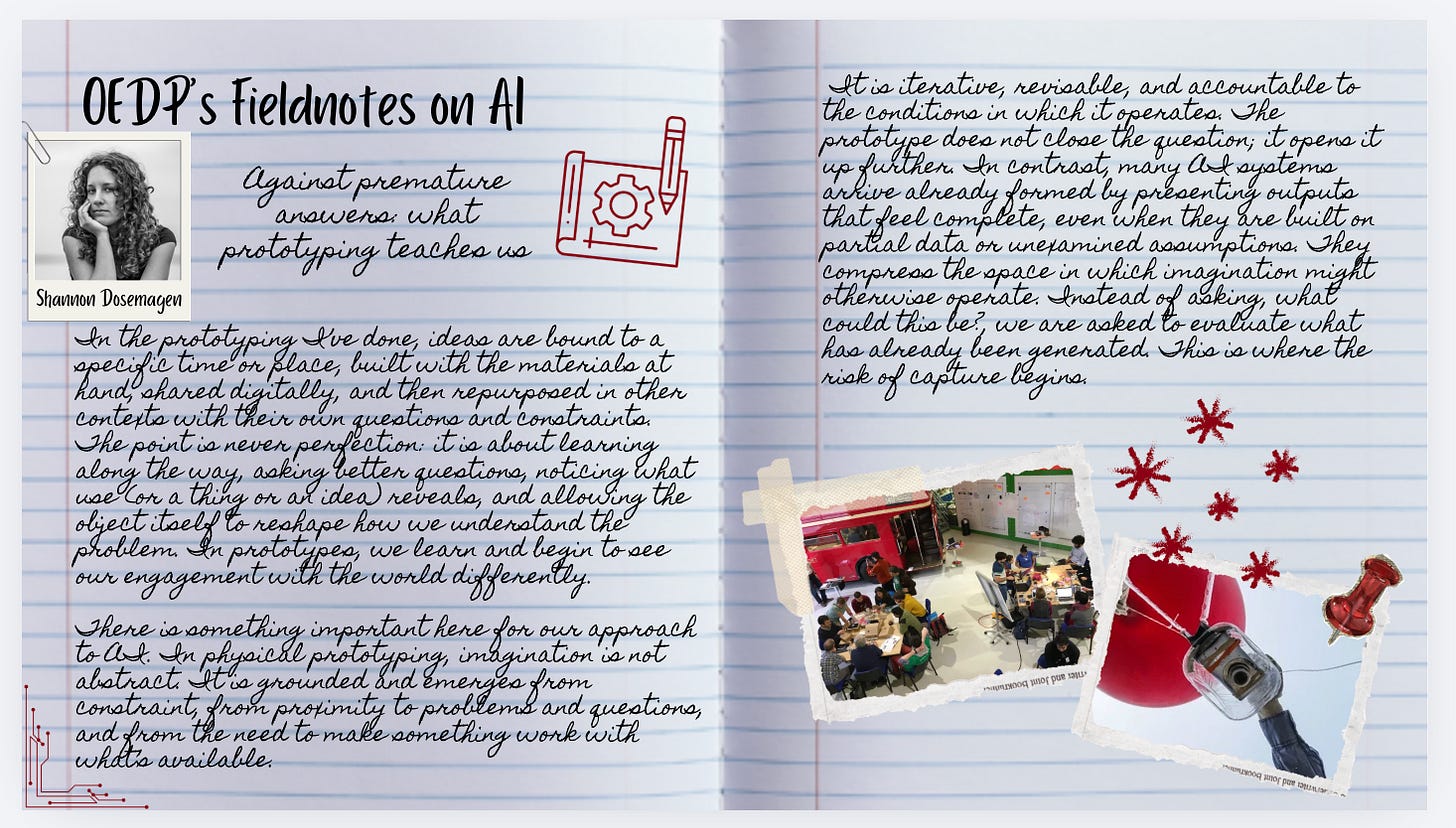 OEDP's Fieldnotes on AI
Against premature
answers: what
prototyping teaches us
Shannon Dosemagen
In the prototyping I've done, ideas are bound to a
specific time or place, built with the materials at
hand, shared digitally, and then repurposed in other
contexts with their own questions and constraints.
The point is never perfection: it is about learning
along the way, asking better questions, noticing what
use (or a thing or an idea) reveals, and allowing the
object itself to reshape how we understand the
problem. In prototypes, we learn and begin to see
our engagement with the world differently.
There is something important here for our approach
to AI. In physical prototyping, imagination is not
abstract. It is grounded and emerges from
constraint, from proximity to problems and questions,
and from the need to make something work with
what's available.
It is iterative, revisable, and accountable to
the conditions in which it operates. The
prototype does not close the question; it opens it
up further. In contrast, many AI systems
arrive already formed by presenting outputs
that feel complete, even when they are built on
partial data or unexamined assumptions. They
compress the space in which imagination might
otherwise operate. Instead of asking, what
could this be?, we are asked to evaluate what
has already been generated. This is where the
risk of capture begins.
and Joint
and Joint